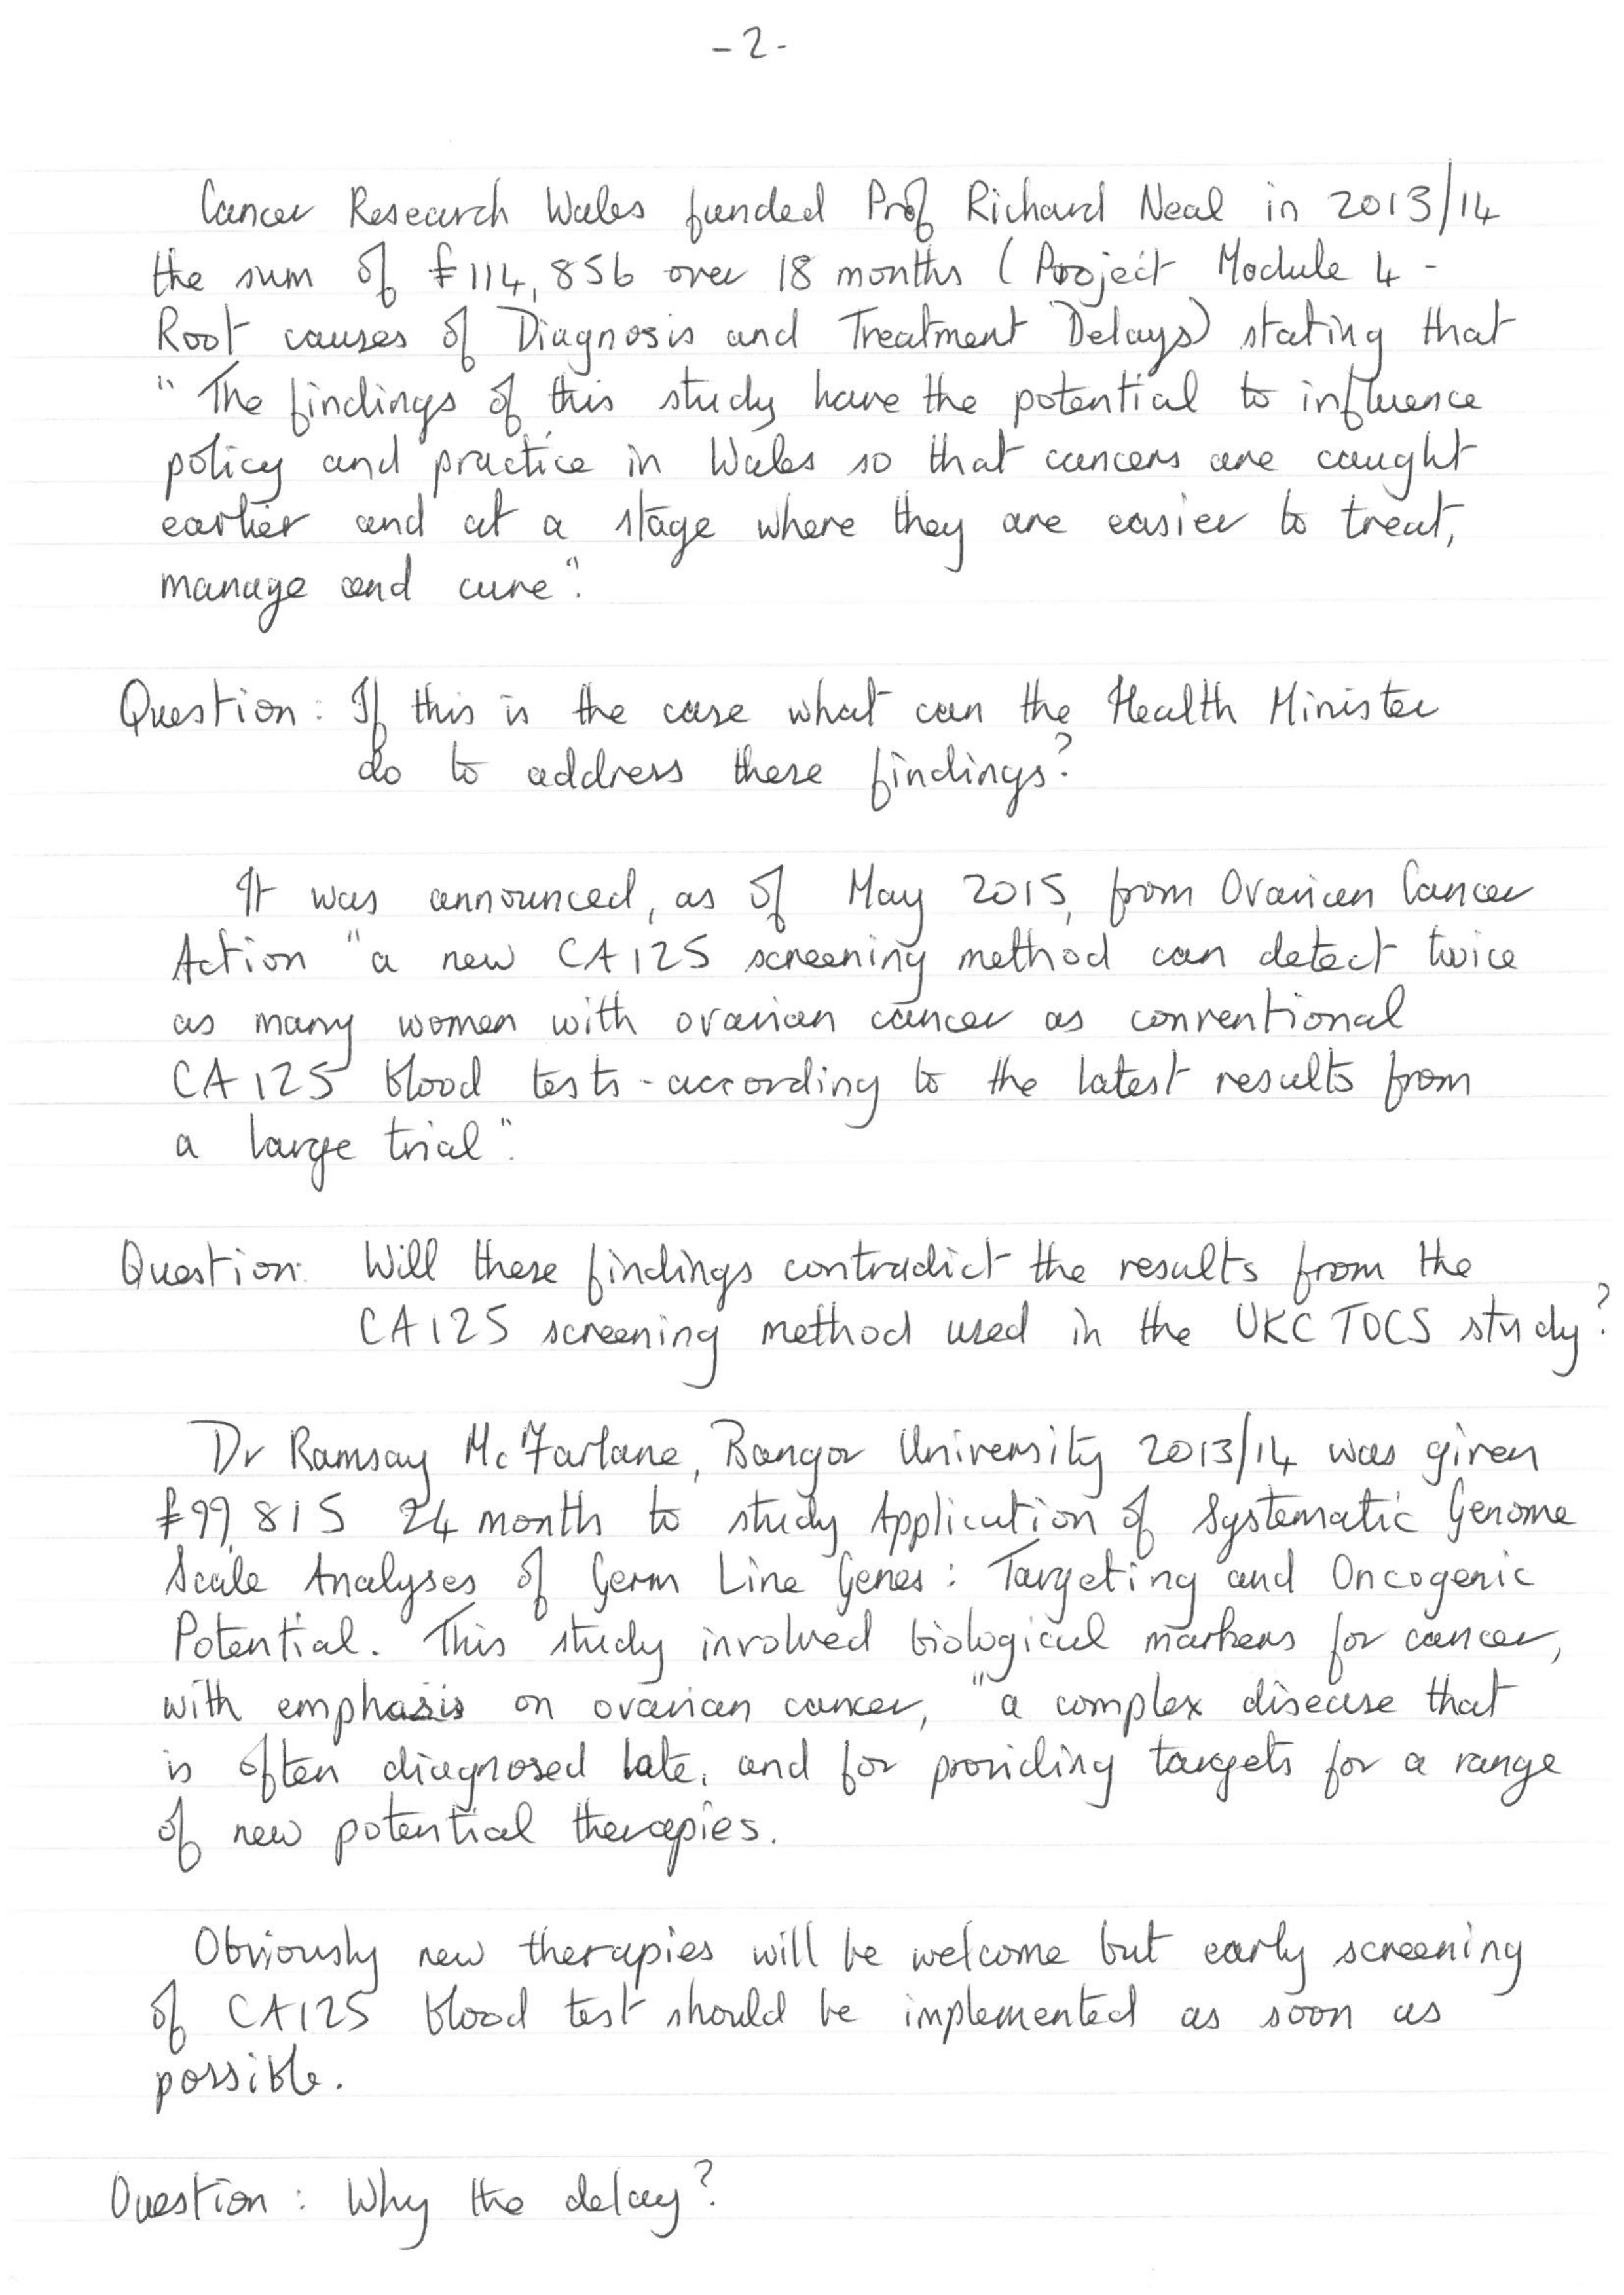 -2-
Cancer Research Wales funded Prof Richard Neal in 2013/14
the sum of £114,856 over 18 months (Project Module 4 -
Root causes of Diagnosis and Treatment Delays) stating that
"The findings of this study have the potential to influence
policy and practice in Wales so that cancers are caught
earlier and at a stage where they are easier to treat,
manage and cure".
Question: If this is the case what can the Health Minister
do to address these findings?
It was announced, as of May 2015, from Ovarian Cancer
Action "a new CA125 screening method can detect twice
as many women with ovarian cancer as conventional
CA125 blood tests - according to the latest results from
a large trial".
Question: Will these findings contradict the results from the
CA125 screening method used in the UKCTOCS study?
Dr Ramsay McFarlane, Bangor University 2013/14 was given
£99,815 24 month to study Application of Systematic Genome
Scale Analyses of Germ Line Genes: Targeting and Oncogenic
Potential. This study involved biological markers for cancer,
with emphasis on ovarian cancer, "a complex disease that
is often diagnosed late, and for providing targets for a range
of new potential therapies.
Obviously new therapies will be welcome but early screening
of CA125 blood test should be implemented as soon as
possible.
Question: Why the delay?